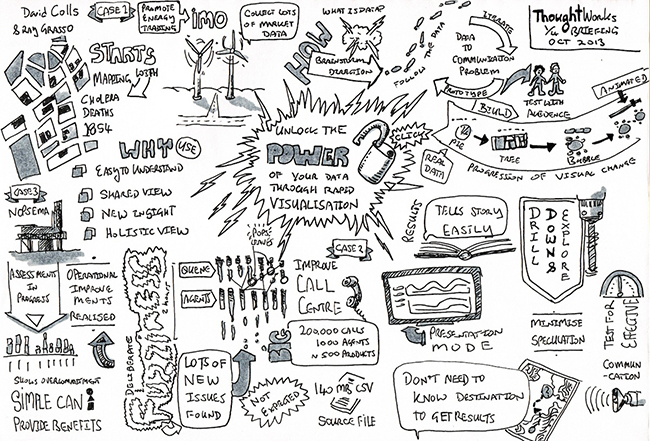 David Colls
& Ray Grasso
CASE 1
PROMOTE
ENERGY
TRADING
IMO
COLLECT LOTS
OF MARKET
DATA
WHAT IS DATA?
HOW
BRAINSTORM
DIRECTION
FOLLOW THE DATA
ITERATE
DATA
TO
COMMUNICATION
PROBLEM
PROTOTYPE
TEST WITH
AUDIENCE
ThoughtWorks
BRIEFING
OCT 2013
STARTS
WITH
MAPPING
CHOLERA
DEATHS
1854
WHY USE
EASY TO UNDERSTAND
SHARED VIEW
NEW INSIGHT
HOLISTIC VIEW
UNLOCK THE
POWER
OF YOUR DATA
THROUGH RAPID
VISUALISATION
CLICK
BUILD
REAL
DATA
PIE
TREE
BUBBLE
ANIMATED
PROGRESSION OF VISUAL CHANGE
CASE 3
NOPSEMA
ASSESSMENTS
IN
PROGRESS
OPERATIONAL
IMPROVE
MENTS
REALISED
SHOWS OVERCOMMITMENT
SIMPLE CAN
PROVIDE BENEFITS
DELIBERATE
FUZZINESS
QUEUE
AGENTS
CASE 2
IMPROVE
CALL
CENTRE
BIG
200,000 CALLS
1000 AGENTS
N 500 PRODUCTS
LOTS OF
NEW
ISSUES
FOUND
NOT EXPECTED
140 MB CSV
SOURCE FILE
RESULTS
TELLS STORY
EASILY
PRESENTATION
MODE
DRILL
DOWNS
EXPLORE
MINIMISE
SPECULATION
TEST FOR
EFFECTIVE
COMMUN-
ICATION
DON'T NEED TO
KNOW DESTINATION
TO GET RESULTS